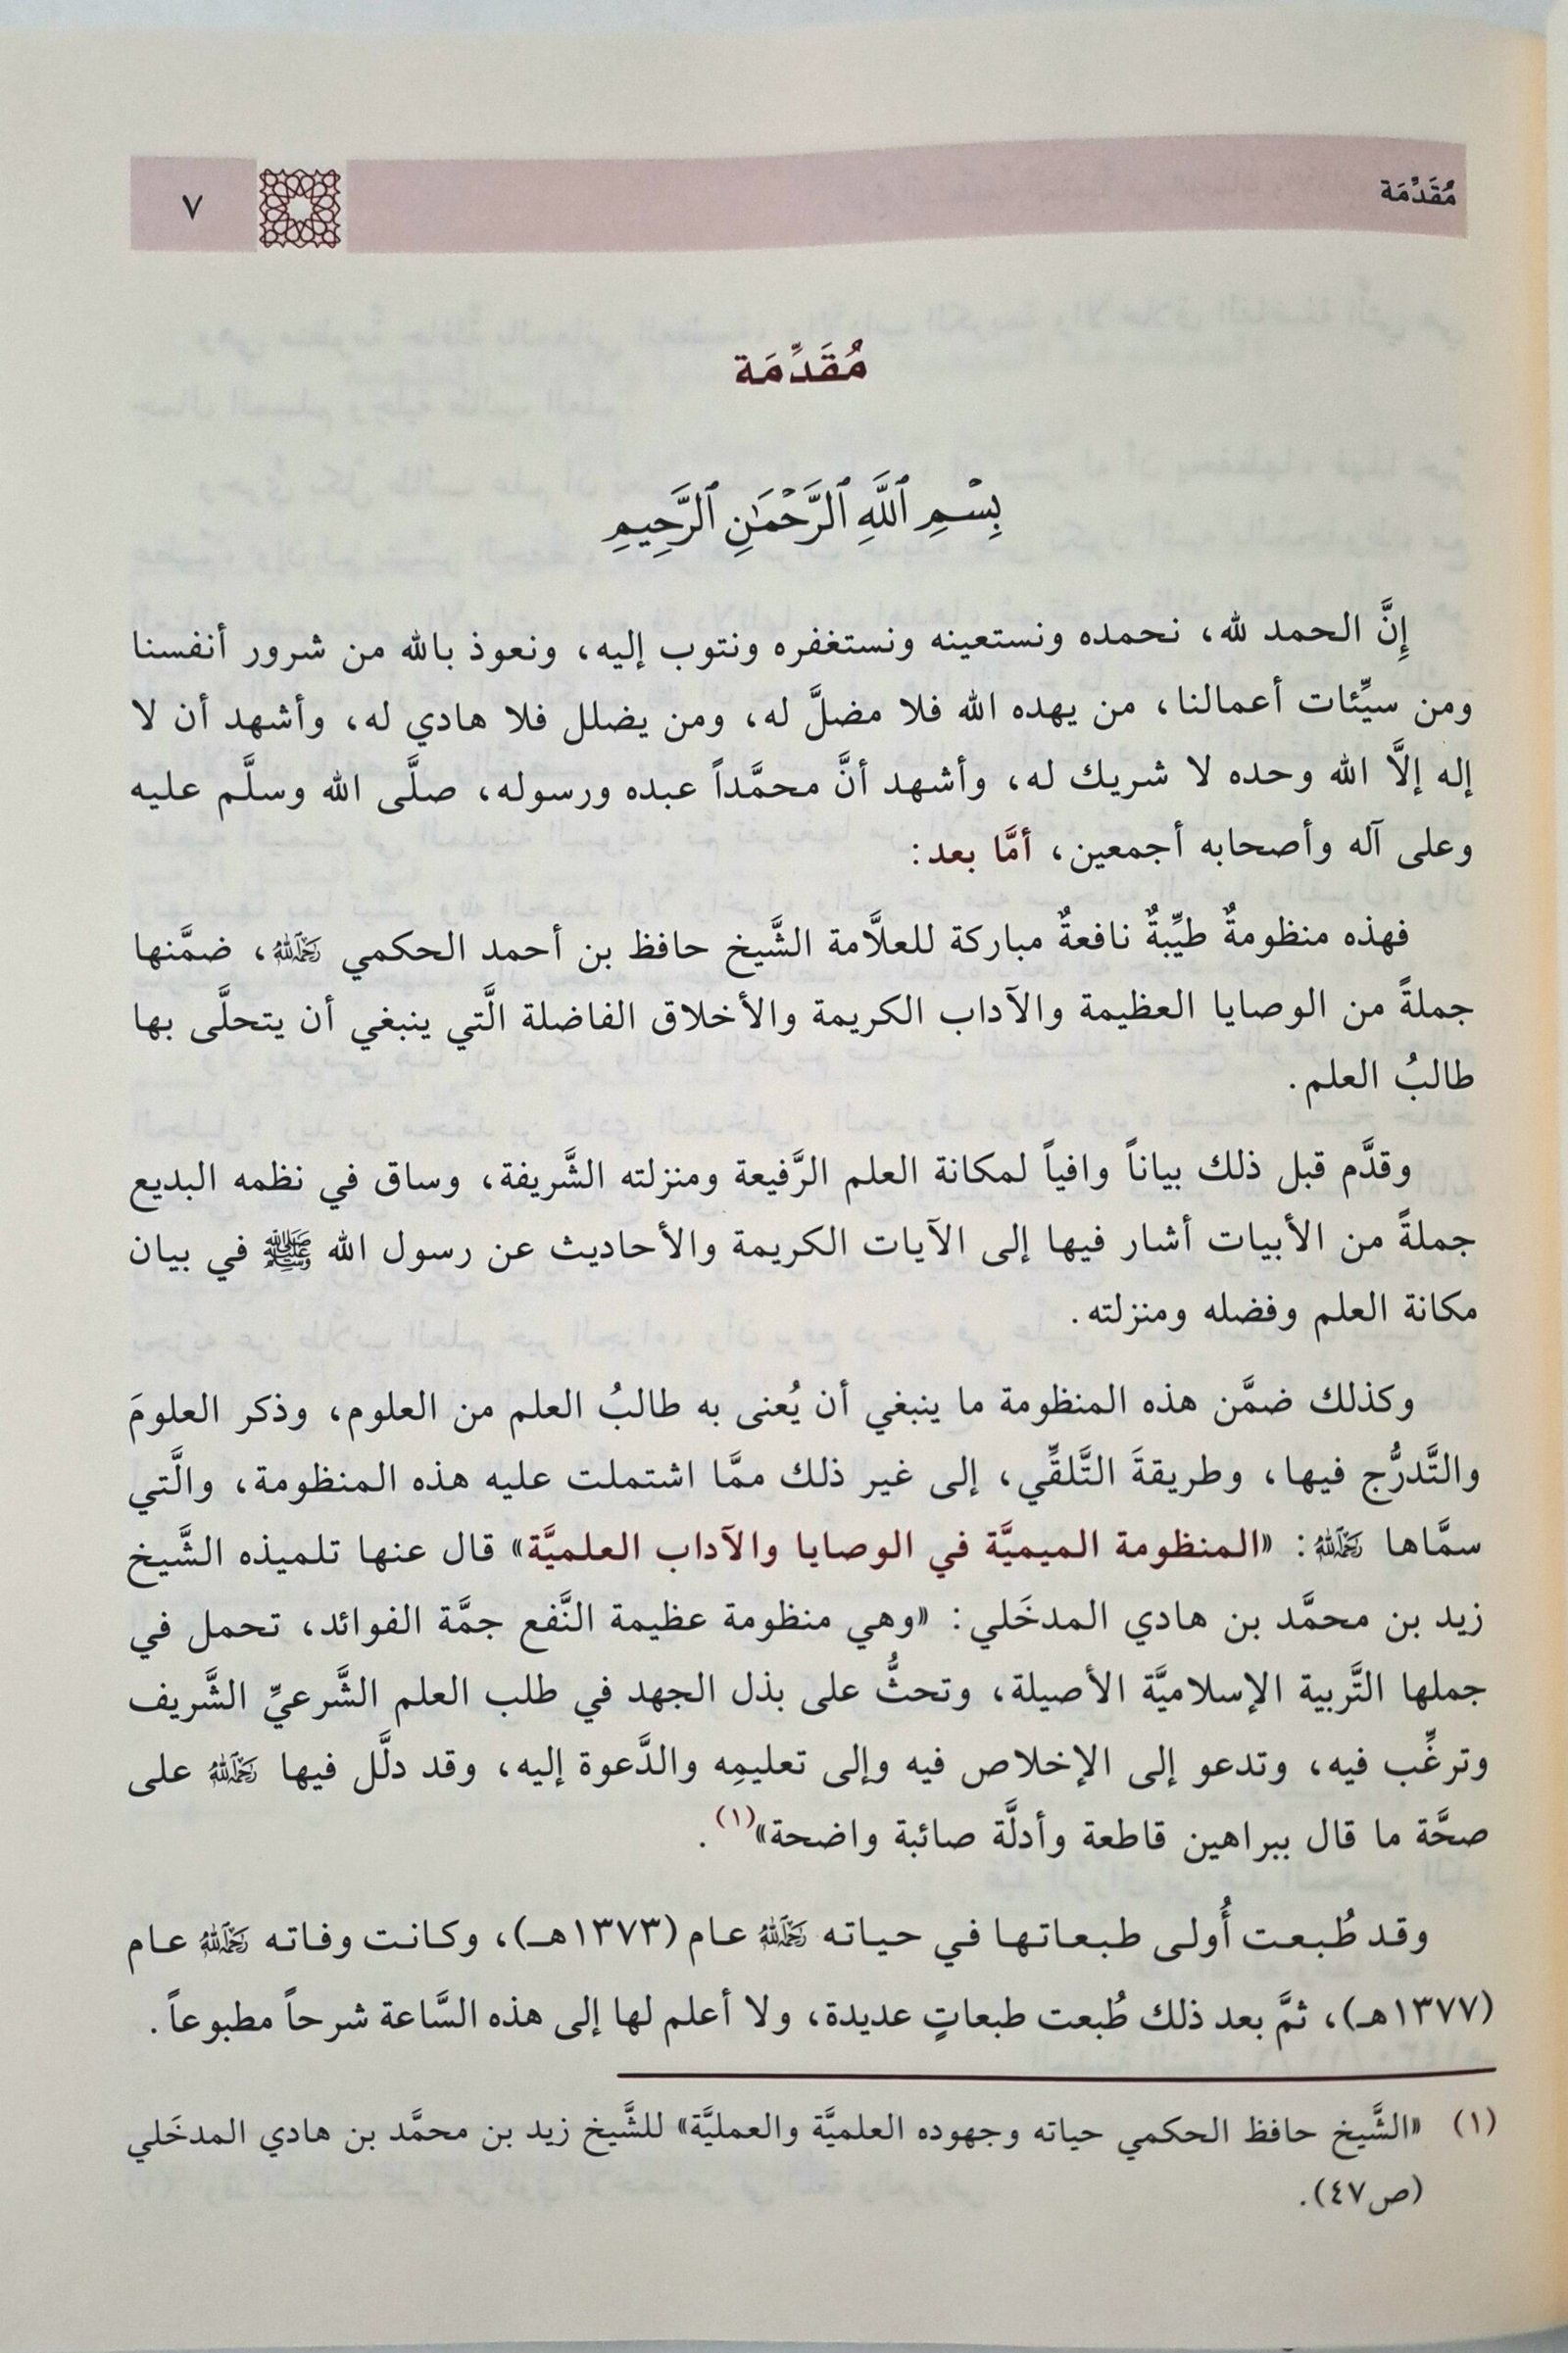 مُقَدِّمَة
٧
مُقَدِّمَة
بِسْمِ ٱللَّهِ ٱلرَّحْمَٰنِ ٱلرَّحِيمِ
إِنَّ الحمد لله، نحمده ونستعينه ونستغفره ونتوب إليه، ونعوذ بالله من شرور أنفسنا
ومن سيِّئات أعمالنا، من يهده الله فلا مضلَّ له، ومن يضلل فلا هادي له، وأشهد أن لا
إله إلَّا الله وحده لا شريك له، وأشهد أنَّ محمَّداً عبده ورسوله، صلَّى الله وسلَّم عليه
وعلى آله وأصحابه أجمعين، أمَّا بعد:
فهذه منظومةٌ طيِّبةٌ نافعةٌ مباركة للعلاَّمة الشَّيخ حافظ بن أحمد الحكمي رَحِمَهُ ٱللَّهُ، ضمَّنها
جملةً من الوصايا العظيمة والآداب الكريمة والأخلاق الفاضلة الَّتي ينبغي أن يتحلَّى بها
طالبُ العلم.
وقدَّم قبل ذلك بياناً وافياً لمكانة العلم الرَّفيعة ومنزلته الشَّريفة، وساق في نظمه البديع
جملةً من الأبيات أشار فيها إلى الآيات الكريمة والأحاديث عن رسول الله ﷺ في بيان
مكانة العلم وفضله ومنزلته.
وكذلك ضمَّن هذه المنظومة ما ينبغي أن يُعنى به طالبُ العلم من العلوم، وذكر العلومَ
والتَّدرُّج فيها، وطريقةَ التَّلقِّي، إلى غير ذلك ممَّا اشتملت عليه هذه المنظومة، والَّتي
سمَّاها رَحِمَهُ ٱللَّهُ: «المنظومة الميميَّة في الوصايا والآداب العلميَّة» قال عنها تلميذه الشَّيخ
زيد بن محمَّد بن هادي المدخَلي: «وهي منظومة عظيمة النَّفع جمَّة الفوائد، تحمل في
جملها التَّربية الإسلاميَّة الأصيلة، وتحثُّ على بذل الجهد في طلب العلم الشَّرعيِّ الشَّريف
وترغِّب فيه، وتدعو إلى الإخلاص فيه وإلى تعليمِه والدَّعوة إليه، وقد دلَّل فيها رَحِمَهُ ٱللَّهُ على
صحَّة ما قال ببراهين قاطعة وأدلَّة صائبة واضحة»(١).
وقد طُبعت أُولى طبعاتها في حياته رَحِمَهُ ٱللَّهُ عام (١٣٧٣هـ)، وكانت وفاته رَحِمَهُ ٱللَّهُ عام
(١٣٧٧هـ)، ثمَّ بعد ذلك طُبعت طبعاتٍ عديدة، ولا أعلم لها إلى هذه السَّاعة شرحاً مطبوعاً.
(١) «الشَّيخ حافظ الحكمي حياته وجهوده العلميَّة والعمليَّة» للشَّيخ زيد بن محمَّد بن هادي المدخَلي
(ص٤٧).